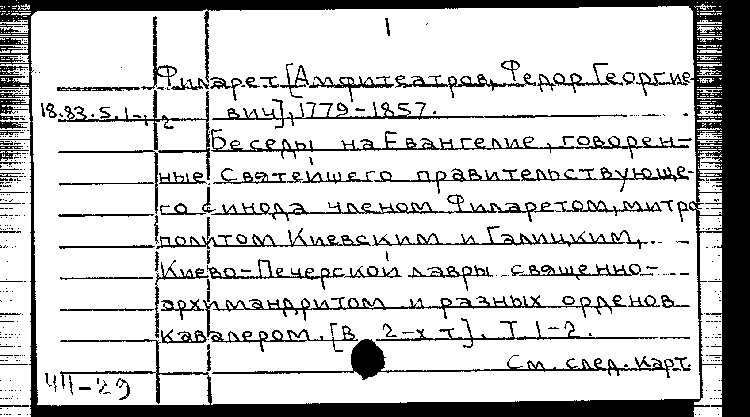 1
Филарет [Амфитеатров, Федор Георгие-
18.83.5.1-1,2 вич], 1779-1857.
Беседы на Евангелие, говорен-
ные Святейшего правительствующе-
го синода членом Филаретом, митро
политом Киевским и Галицким,
Киево-Печерской лавры священно-
архимандритом и разных орденов
кавалером. [В 2-х т]. Т 1-2.
См. след. карт.
44-29